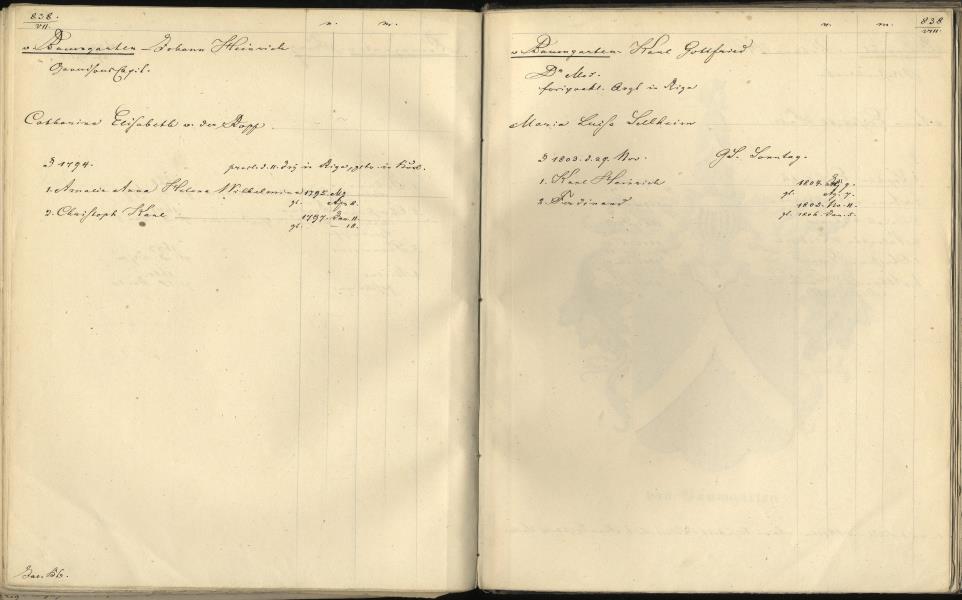 838.
VII.
n. m.
v. Baumgarten Johann Heinrich
Garnisons Capit.
Catharina Elisabeth v. der Ropp
1794. procl. d. 11. in Riga, getr. in Kurl.
1. Amalie Anna Helena Wilhelmina 1795.
gt.
2. Christoph Karl 1797. Jan. 11.
gt. — 18.
Jac. Kb.
838
VIII.
n. m.
v. Baumgarten Karl Gottfried
Dr Med.
Arzt in Riga
Maria Luise Sellheim
1803. d. 29. Nov. Sonntag.
1. Karl Heinrich 1804. 9.
gt. 7.
2. Ferdinand 1805. No. 11.
gt. 1806. Jan. 5.